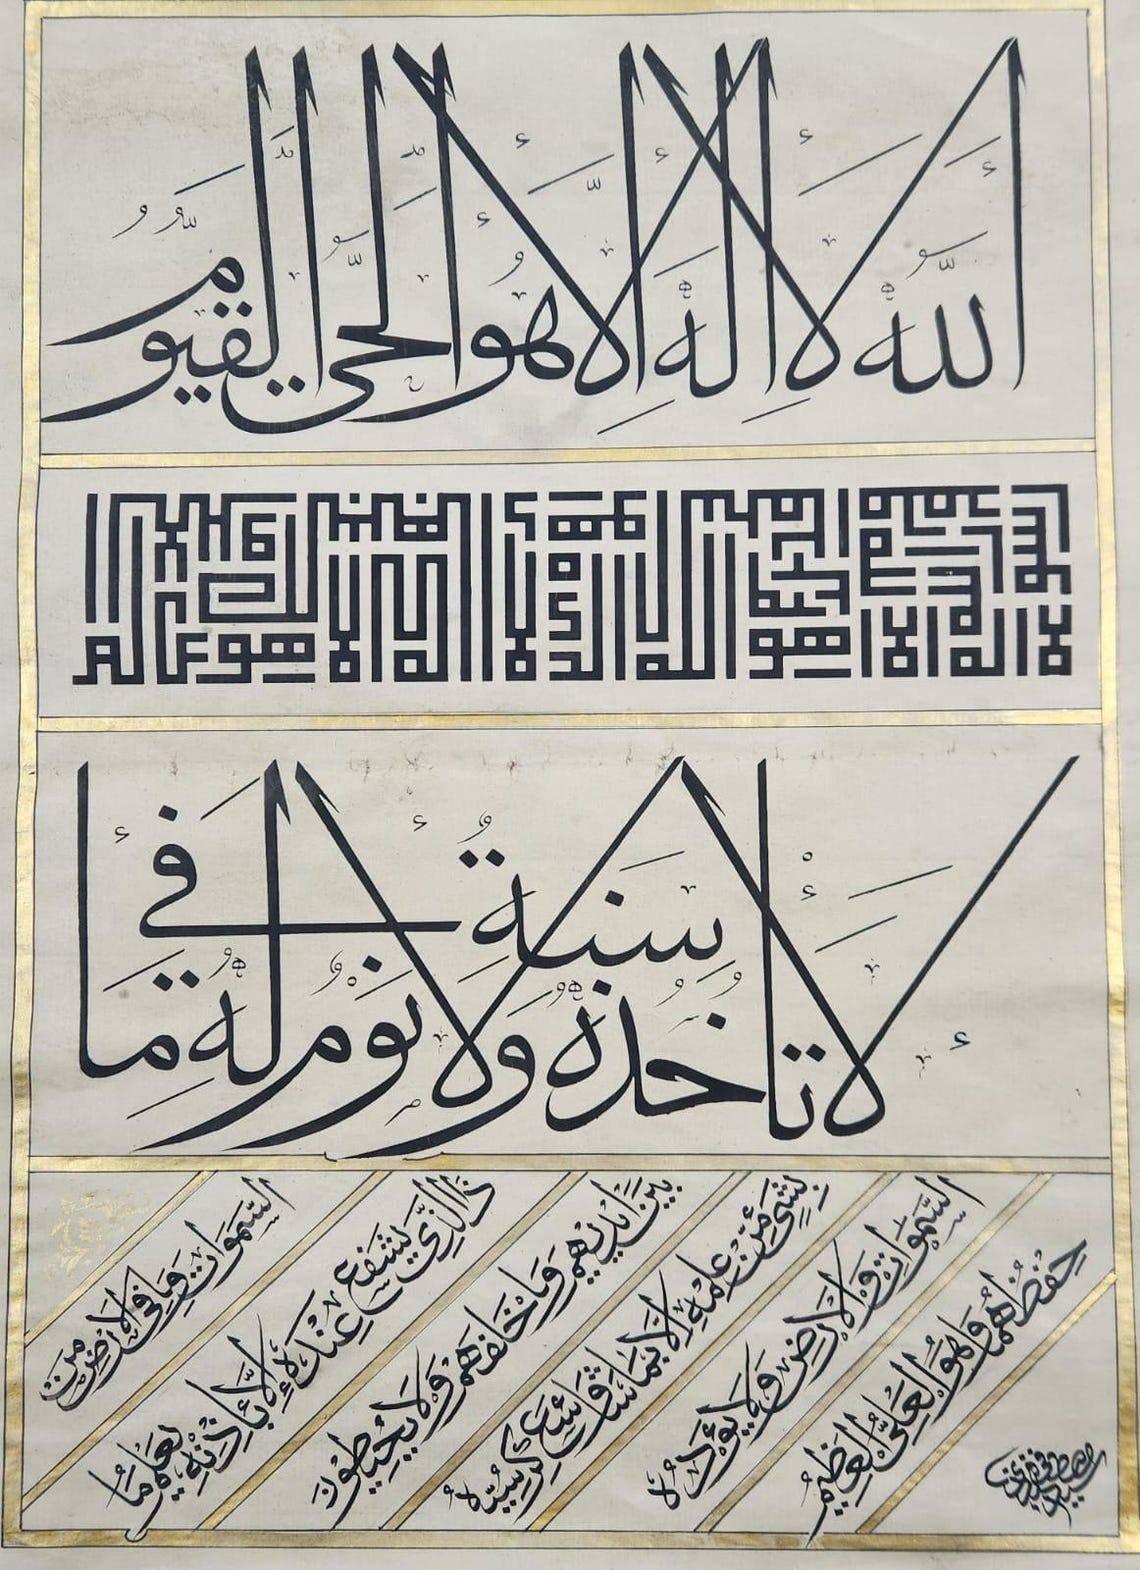 الله لا اله الا هو الحي القيوم
لا اله الا هو الله الذي لا اله الا هو عالم
لا تاخذه سنة ولا نوم له ما في
السموات وما في الارض من
ذا الذي يشفع عنده الا باذنه يعلم ما
بين ايديهم وما خلفهم ولا يحيطون
بشيء من علمه الا بما شاء وسع كرسيه
السموات والارض ولا يؤده
حفظهما وهو العلي العظيم